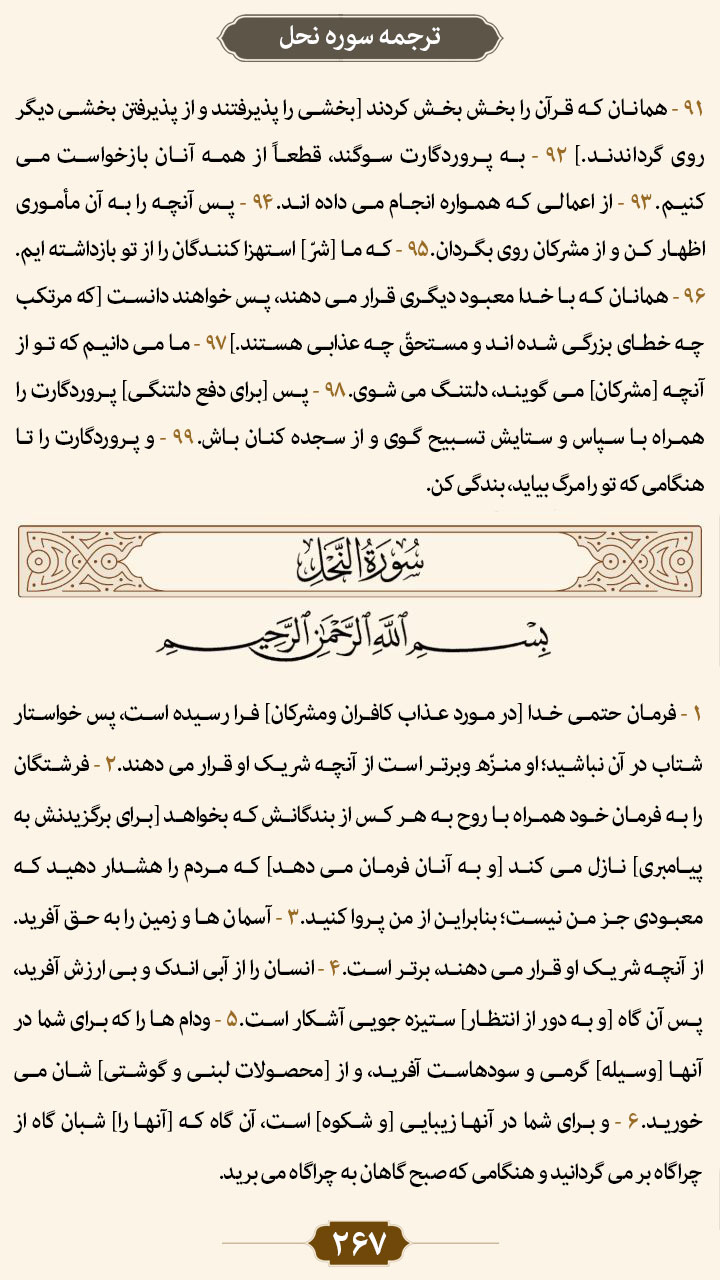 ترجمه سوره نحل
۹۱ - همانان که قرآن را بخش بخش کردند [بخشی را پذیرفتند و از پذیرفتن بخشی دیگر
روی گرداندند.] ۹۲ - به پروردگارت سوگند، قطعاً از همه آنان بازخواست می
کنیم. ۹۳ - از اعمالی که همواره انجام می داده اند. ۹۴ - پس آنچه را به آن مأموری
اظهار کن و از مشرکان روی بگردان. ۹۵ - که ما [شرّ] استهزا کنندگان را از تو بازداشته ایم.
۹۶ - همانان که با خدا معبود دیگری قرار می دهند، پس خواهند دانست [که مرتکب
چه خطای بزرگی شده اند و مستحقّ چه عذابی هستند.] ۹۷ - ما می دانیم که تو از
آنچه [مشرکان] می گویند، دلتنگ می شوی. ۹۸ - پس [برای دفع دلتنگی] پروردگارت را
همراه با سپاس و ستایش تسبیح گوی و از سجده کنان باش. ۹۹ - و پروردگارت را تا
هنگامی که تو را مرگ بیاید، بندگی کن.
سُورَةُ النَّحْلِ
بِسْمِ ٱللَّهِ ٱلرَّحْمَٰنِ ٱلرَّحِيمِ
۱ - فرمان حتمی خدا [در مورد عذاب کافران ومشرکان] فرا رسیده است، پس خواستار
شتاب در آن نباشید؛ او منزّه وبرتر است از آنچه شریک او قرار می دهند. ۲ - فرشتگان
را به فرمان خود همراه با روح به هر کس از بندگانش که بخواهد [برای برگزیدنش به
پیامبری] نازل می کند [و به آنان فرمان می دهد] که مردم را هشدار دهید که
معبودی جز من نیست؛ بنابراین از من پروا کنید. ۳ - آسمان ها و زمین را به حق آفرید.
از آنچه شریک او قرار می دهند، برتر است. ۴ - انسان را از آبی اندک و بی ارزش آفرید،
پس آن گاه [و به دور از انتظار] ستیزه جویی آشکار است. ۵ - ودام ها را که برای شما در
آنها [وسیله] گرمی و سودهاست آفرید، و از [محصولات لبنی و گوشتی] شان می
خورید. ۶ - و برای شما در آنها زیبایی [و شکوه] است، آن گاه که [آنها را] شبان گاه از
چراگاه بر می گردانید و هنگامی که صبح گاهان به چراگاه می برید.
۲۶۷